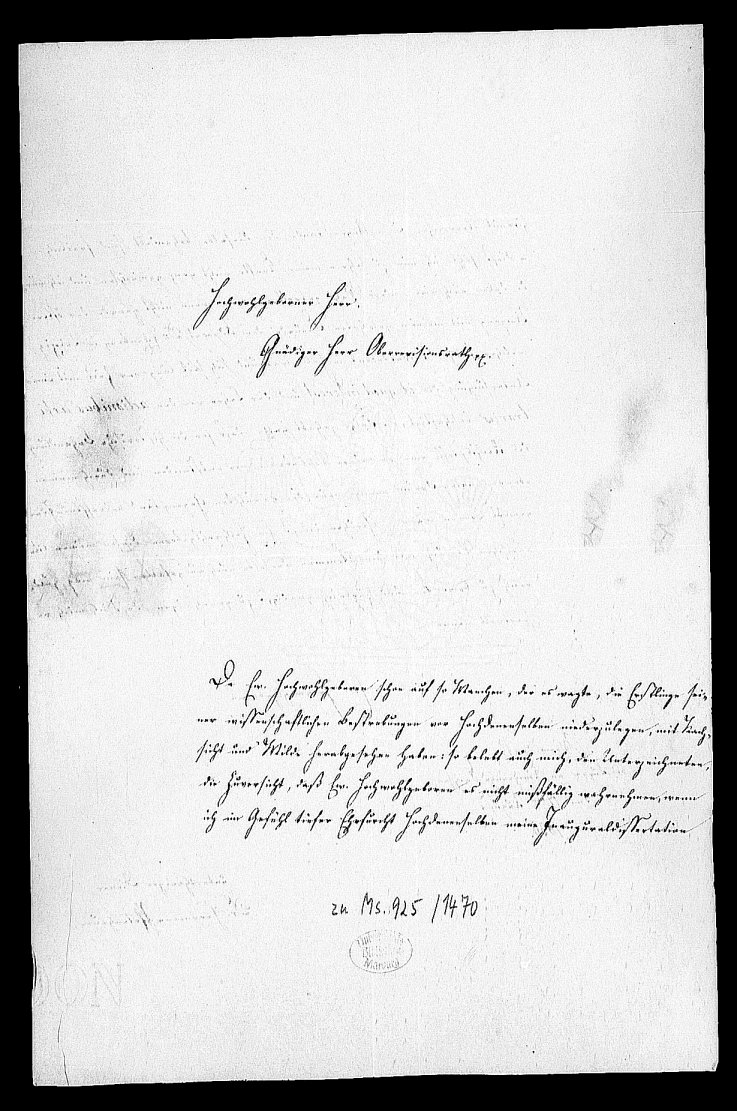 Hochwohlgeborner Herr.
Gnädiger Herr Oberrevisionsrath pp.
Da Ew. Hochwohlgeboren schon auf so Manchen, der es wagte, die Erstlinge sei-
ner wissenschaftlichen Bestrebungen vor Hochdenenselben niederzulegen, mit Nach-
sicht und Milde herabgesehen haben: so belebt auch mich, den Unterzeichneten,
die Zuversicht, daß Ew. Hochwohlgeboren es nicht mißfällig wahrnehmen, wenn
ich im Gefühl tiefer Ehrfurcht Hochdenenselben meine Inauguraldissertation
zu Ms. 925 / 1470